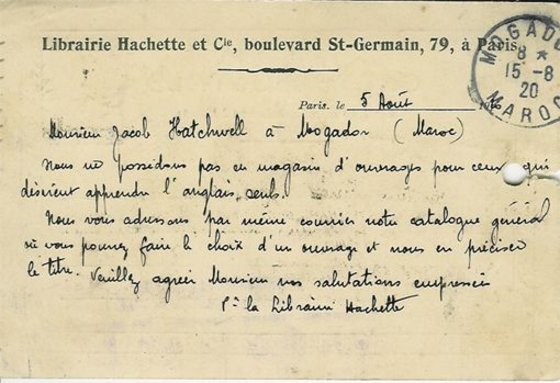 Librairie Hachette et Cie, boulevard St-Germain, 79, à Paris
MOGADO
8 *
15 - 8
20
MAROC
Paris, le 5 Août 19
Monsieur Jacob Hatchwell à Mogador (Maroc)
Nous ne possédons pas en magasin d'ouvrages pour ceux qui
désirent apprendre l'anglais seuls.
Nous vous adressons par même courrier notre catalogue général
où vous pourrez faire le choix d'un ouvrage et nous en préciser
le titre. Veuillez agréer Monsieur nos salutations empressées
Pr la Librairie Hachette